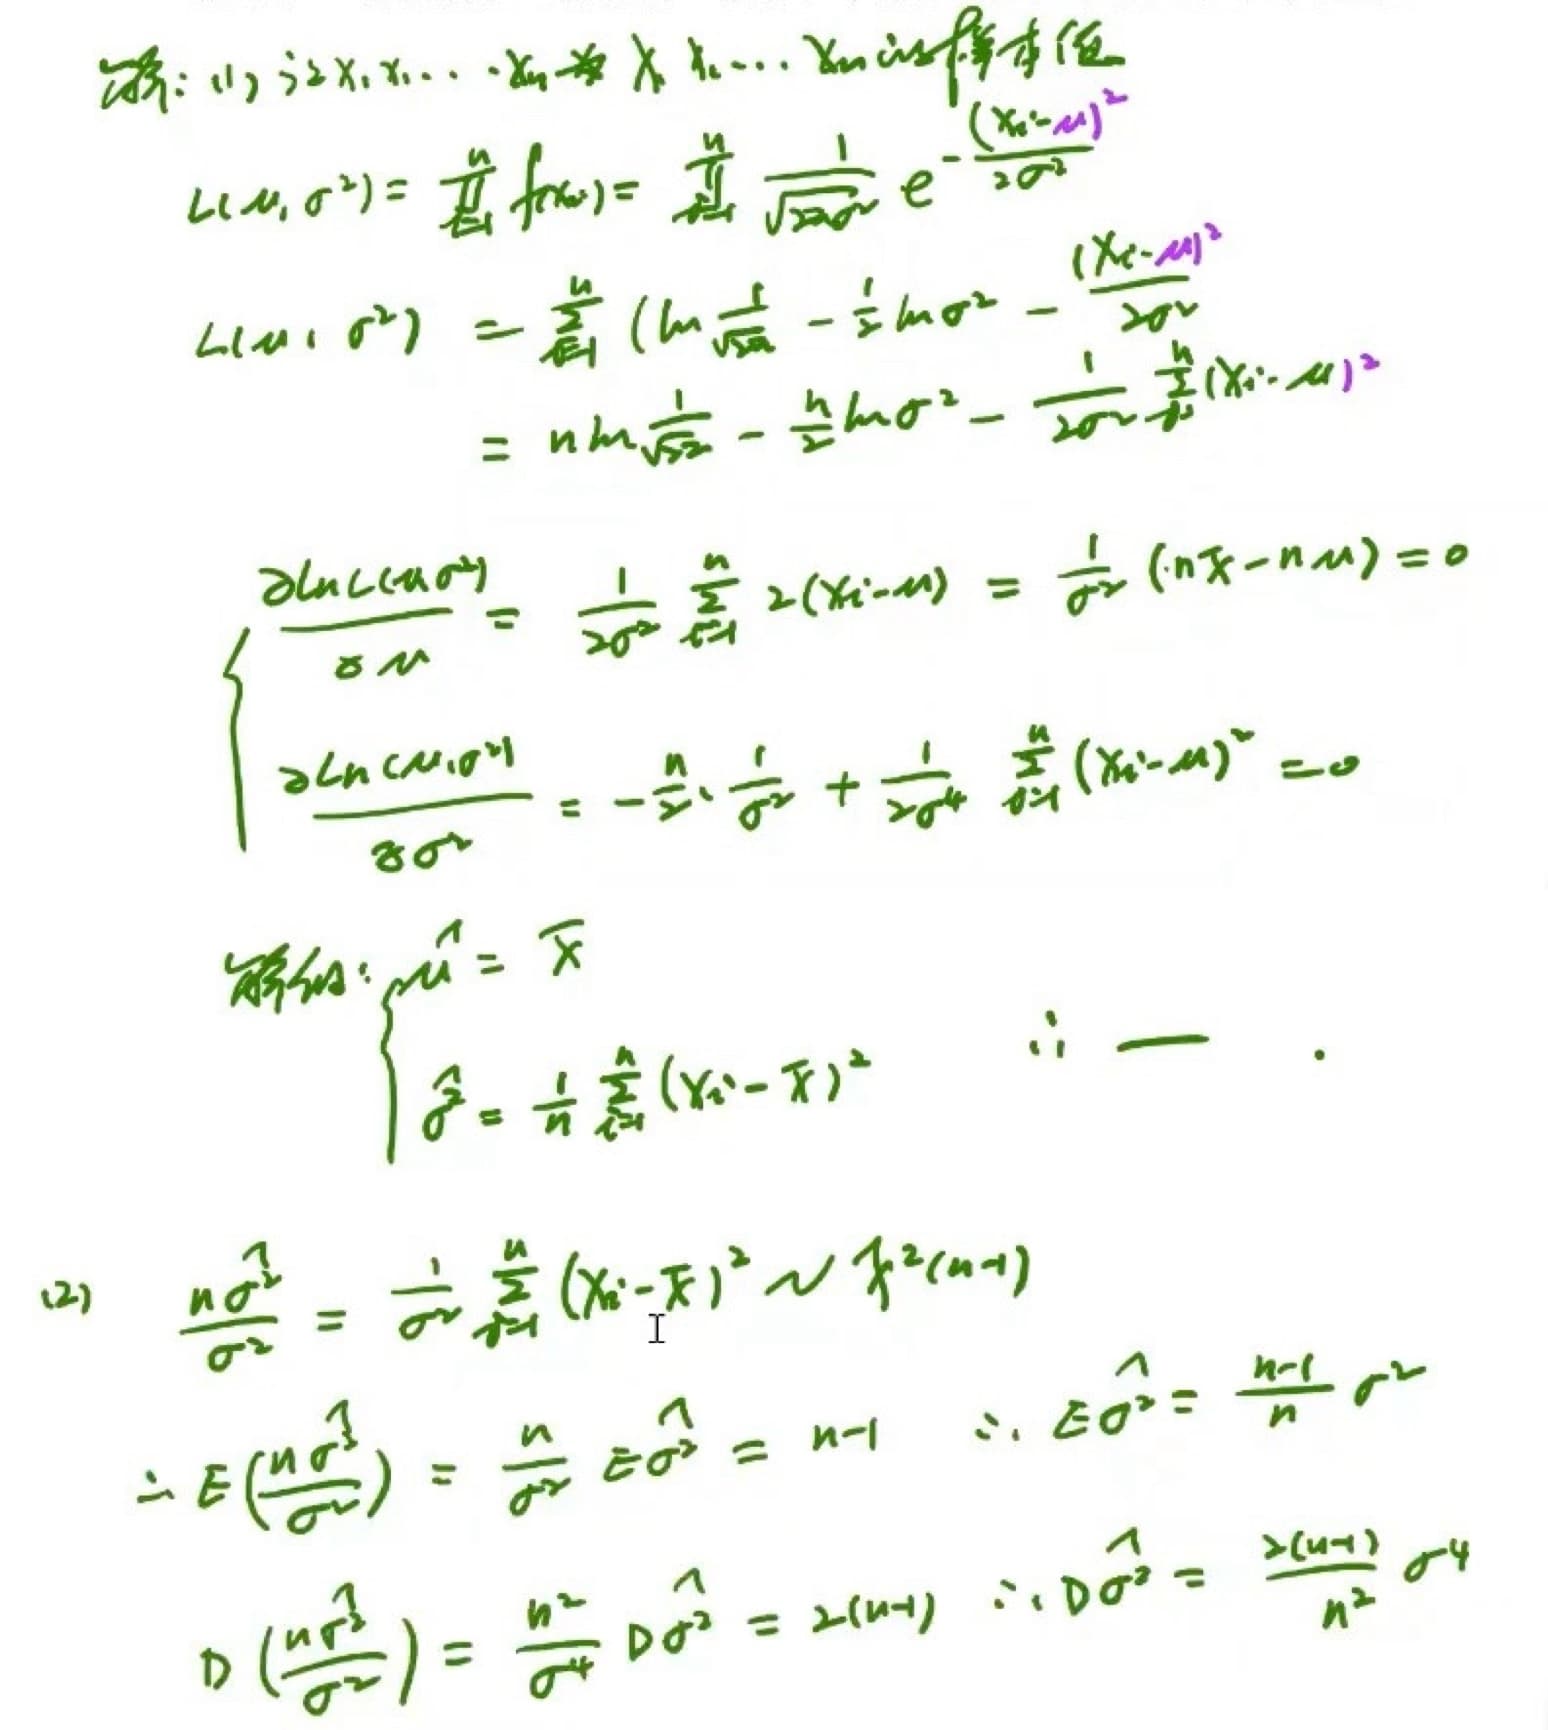 解：(1) 设 x₁ x₂ ... xₙ 为 X₁ X₂ .... Xₙ 的样本值
L(μ, σ²) = ∏ᵢ₌₁ⁿ f(xᵢ) = ∏ᵢ₌₁ⁿ 1/√(2πσ²) e^(-(xᵢ-μ)²/(2σ²))
L(μ, σ²) = ∑ᵢ₌₁ⁿ (ln 1/√(2π) - 1/2 ln σ² - (xᵢ-μ)²/(2σ²)
= n ln 1/√(2π) - n/2 ln σ² - 1/(2σ²) ∑ᵢ₌₁ⁿ (xᵢ-μ)²
{ ∂ln L(μ σ²)/∂μ = 1/(2σ²) ∑ᵢ₌₁ⁿ 2(xᵢ-μ) = 1/σ² (n x̄ - nμ) = 0
∂Ln(μ, σ²)/∂σ² = -n/2 · 1/σ² + 1/(2σ⁴) ∑ᵢ₌₁ⁿ (xᵢ-μ)² = 0
解得： { μ̂ = X̄
σ̂² = 1/n ∑ᵢ₌₁ⁿ (Xᵢ - X̄)² ∴ — .
(2) nσ̂²/σ² = 1/σ² ∑ᵢ₌₁ⁿ (Xᵢ - X̄)² ~ χ²(n-1)
∴ E(nσ̂²/σ²) = n/σ² Eσ̂² = n-1 ∴ Eσ̂² = (n-1)/n σ²
D(nσ̂²/σ²) = n²/σ⁴ Dσ̂² = 2(n-1) ∴ Dσ̂² = 2(n-1)/n² σ⁴